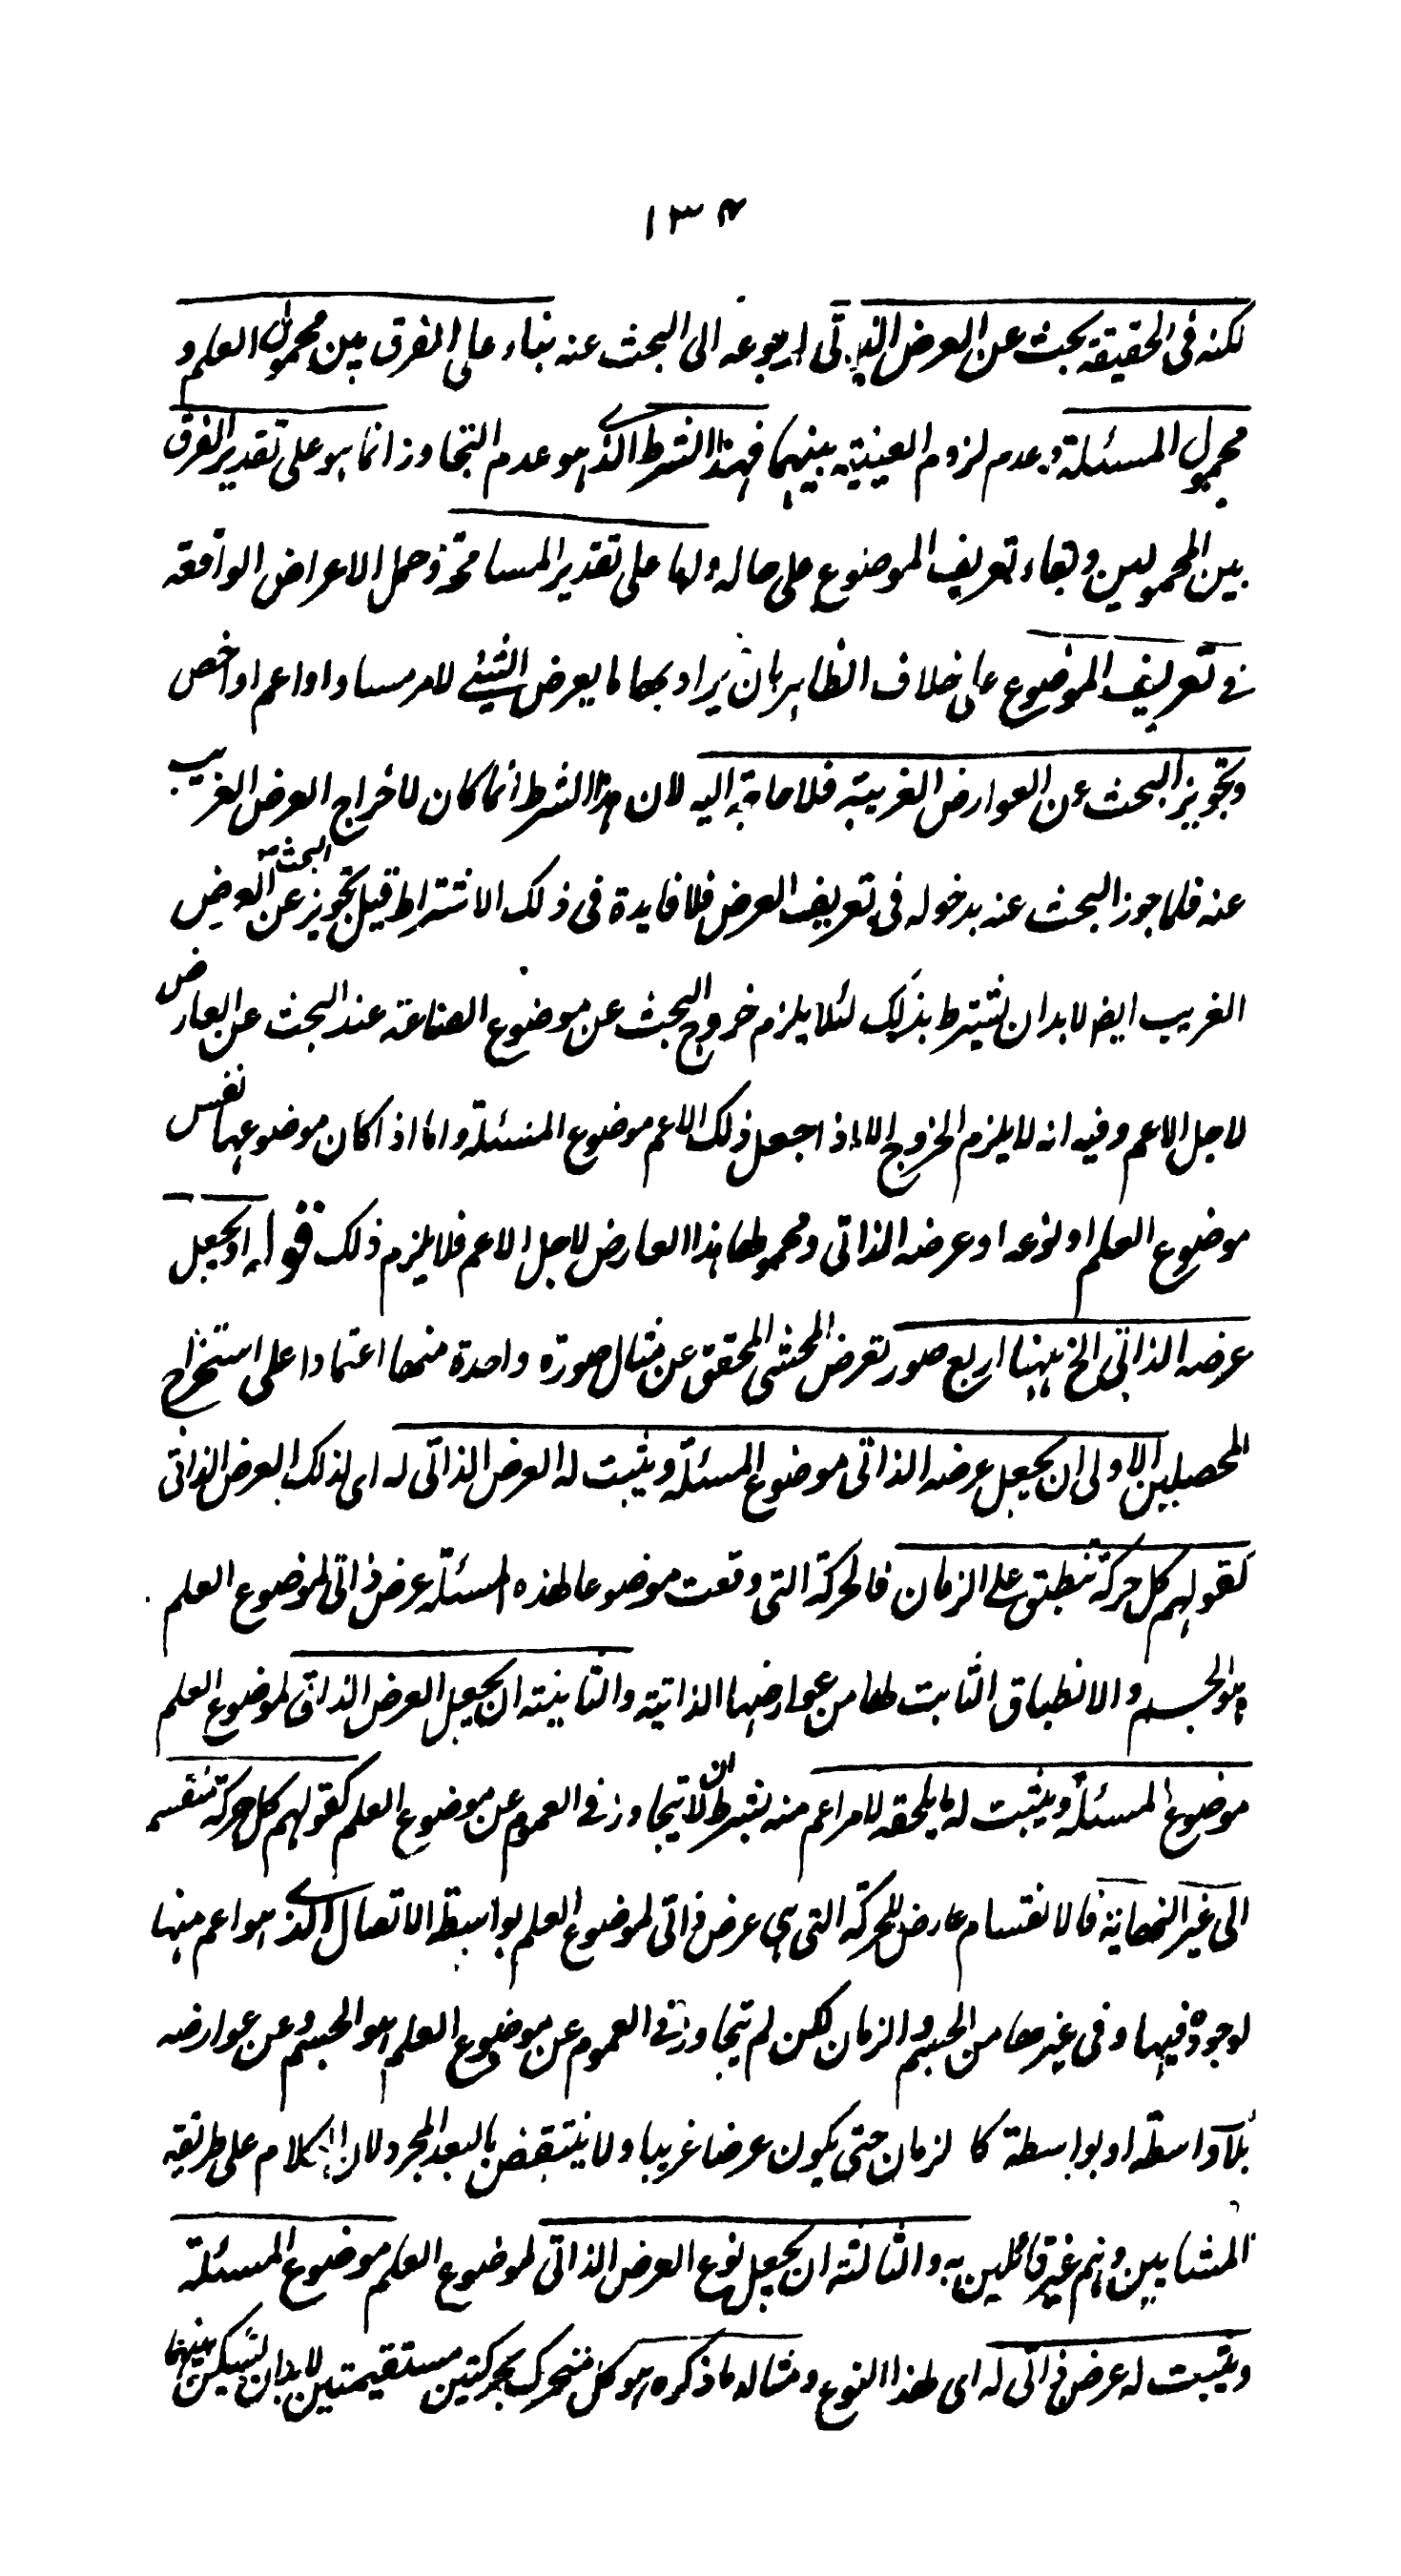 ١٣٤
لكنه في الحقيقة بحث عن العرض الذاتى لرجوعه الى البحث عنه بناء على الفرق بين محمول العلم و
محمول المسئلة وعدم لزوم العينية بينهما فهذا الشرط الذى هو عدم التجاوز انما هو على تقدير الفرق
بين المحمولين وبقاء تعريف الموضوع على حاله واما على تقدير المسامحة وحمل الاعراض الواقعة
في تعريف الموضوع على خلاف الظاهر بان يراد بها ما يعرض الشيئ لامر مساو او اعم او اخص
وتجويز البحث عن العوارض الغريبة فلا حاجة اليه لان هذا الشرط انما كان لاخراج العرض الغريب
عنه فلما جوز البحث عنه بدخوله في تعريف العرض فلا فايدة في ذلك الاشتراط قيل تجويز البحث عن العرض
الغريب ايضا لابد ان تشترط بذلك لئلا يلزم خروج البحث عن موضوع الصناعة عند البحث عن العارض
لاجل الاعم وفيه انه لا يلزم الخروج الا اذا جعل ذلك الاعم موضوع المسئلة واما اذا كان موضوعها نفس
موضوع العلم او نوعه او عرضه الذاتى ومحمولها هذا العارض لاجل الاعم فلا يلزم ذلك قوله او يجعل
عرضه الذاتى الخ ههنا اربع صور تعرض المحشى المحقق عن مثال صورة واحدة منها اعتمادا على استخراج
المحصلين الاولى ان يجعل عرضه الذاتى موضوع المسئلة ويثبت له العرض الذاتى له اى لذلك العرض الذاتى
كقولهم كل حركة تنطبق على الزمان فالحركة التى وقعت موضوعا لهذه المسئلة عرض ذاتى لموضوع العلم
وهو الجسم والانطباق الثابت لها من عوارضها الذاتية والثانية ان يجعل العرض الذاتى لموضوع العلم
موضوع المسئلة ويثبت له ما يلحقه لامر اعم منه بشرط ان لا يتجاوز في العموم عن موضوع العلم كقولهم كل حركة تنقسم
الى غير النهاية فالانقسام عارض للحركة التى هي عرض ذاتى لموضوع العلم بواسطة الاتصال الذى هو اعم منها
لوجوده فيها وفي غيرها من الجسم والزمان لكن لم يتجاوز في العموم عن موضوع العلم هو الجسم وعن عوارضه
بلا واسطة او بواسطة كالزمان حتى يكون عرضا غريبا ولا ينتقض بالبعد المجرد لان الكلام على طريقة
المشايين وهم غير قائلين به والثالثة ان يجعل نوع العرض الذاتى لموضوع العلم موضوع المسئلة
ويثبت له عرض ذاتى له اى لهذا النوع ومثاله ما ذكره هو كل متحرك بحركتين مستقيمتين لابد ان تسكن بينهما